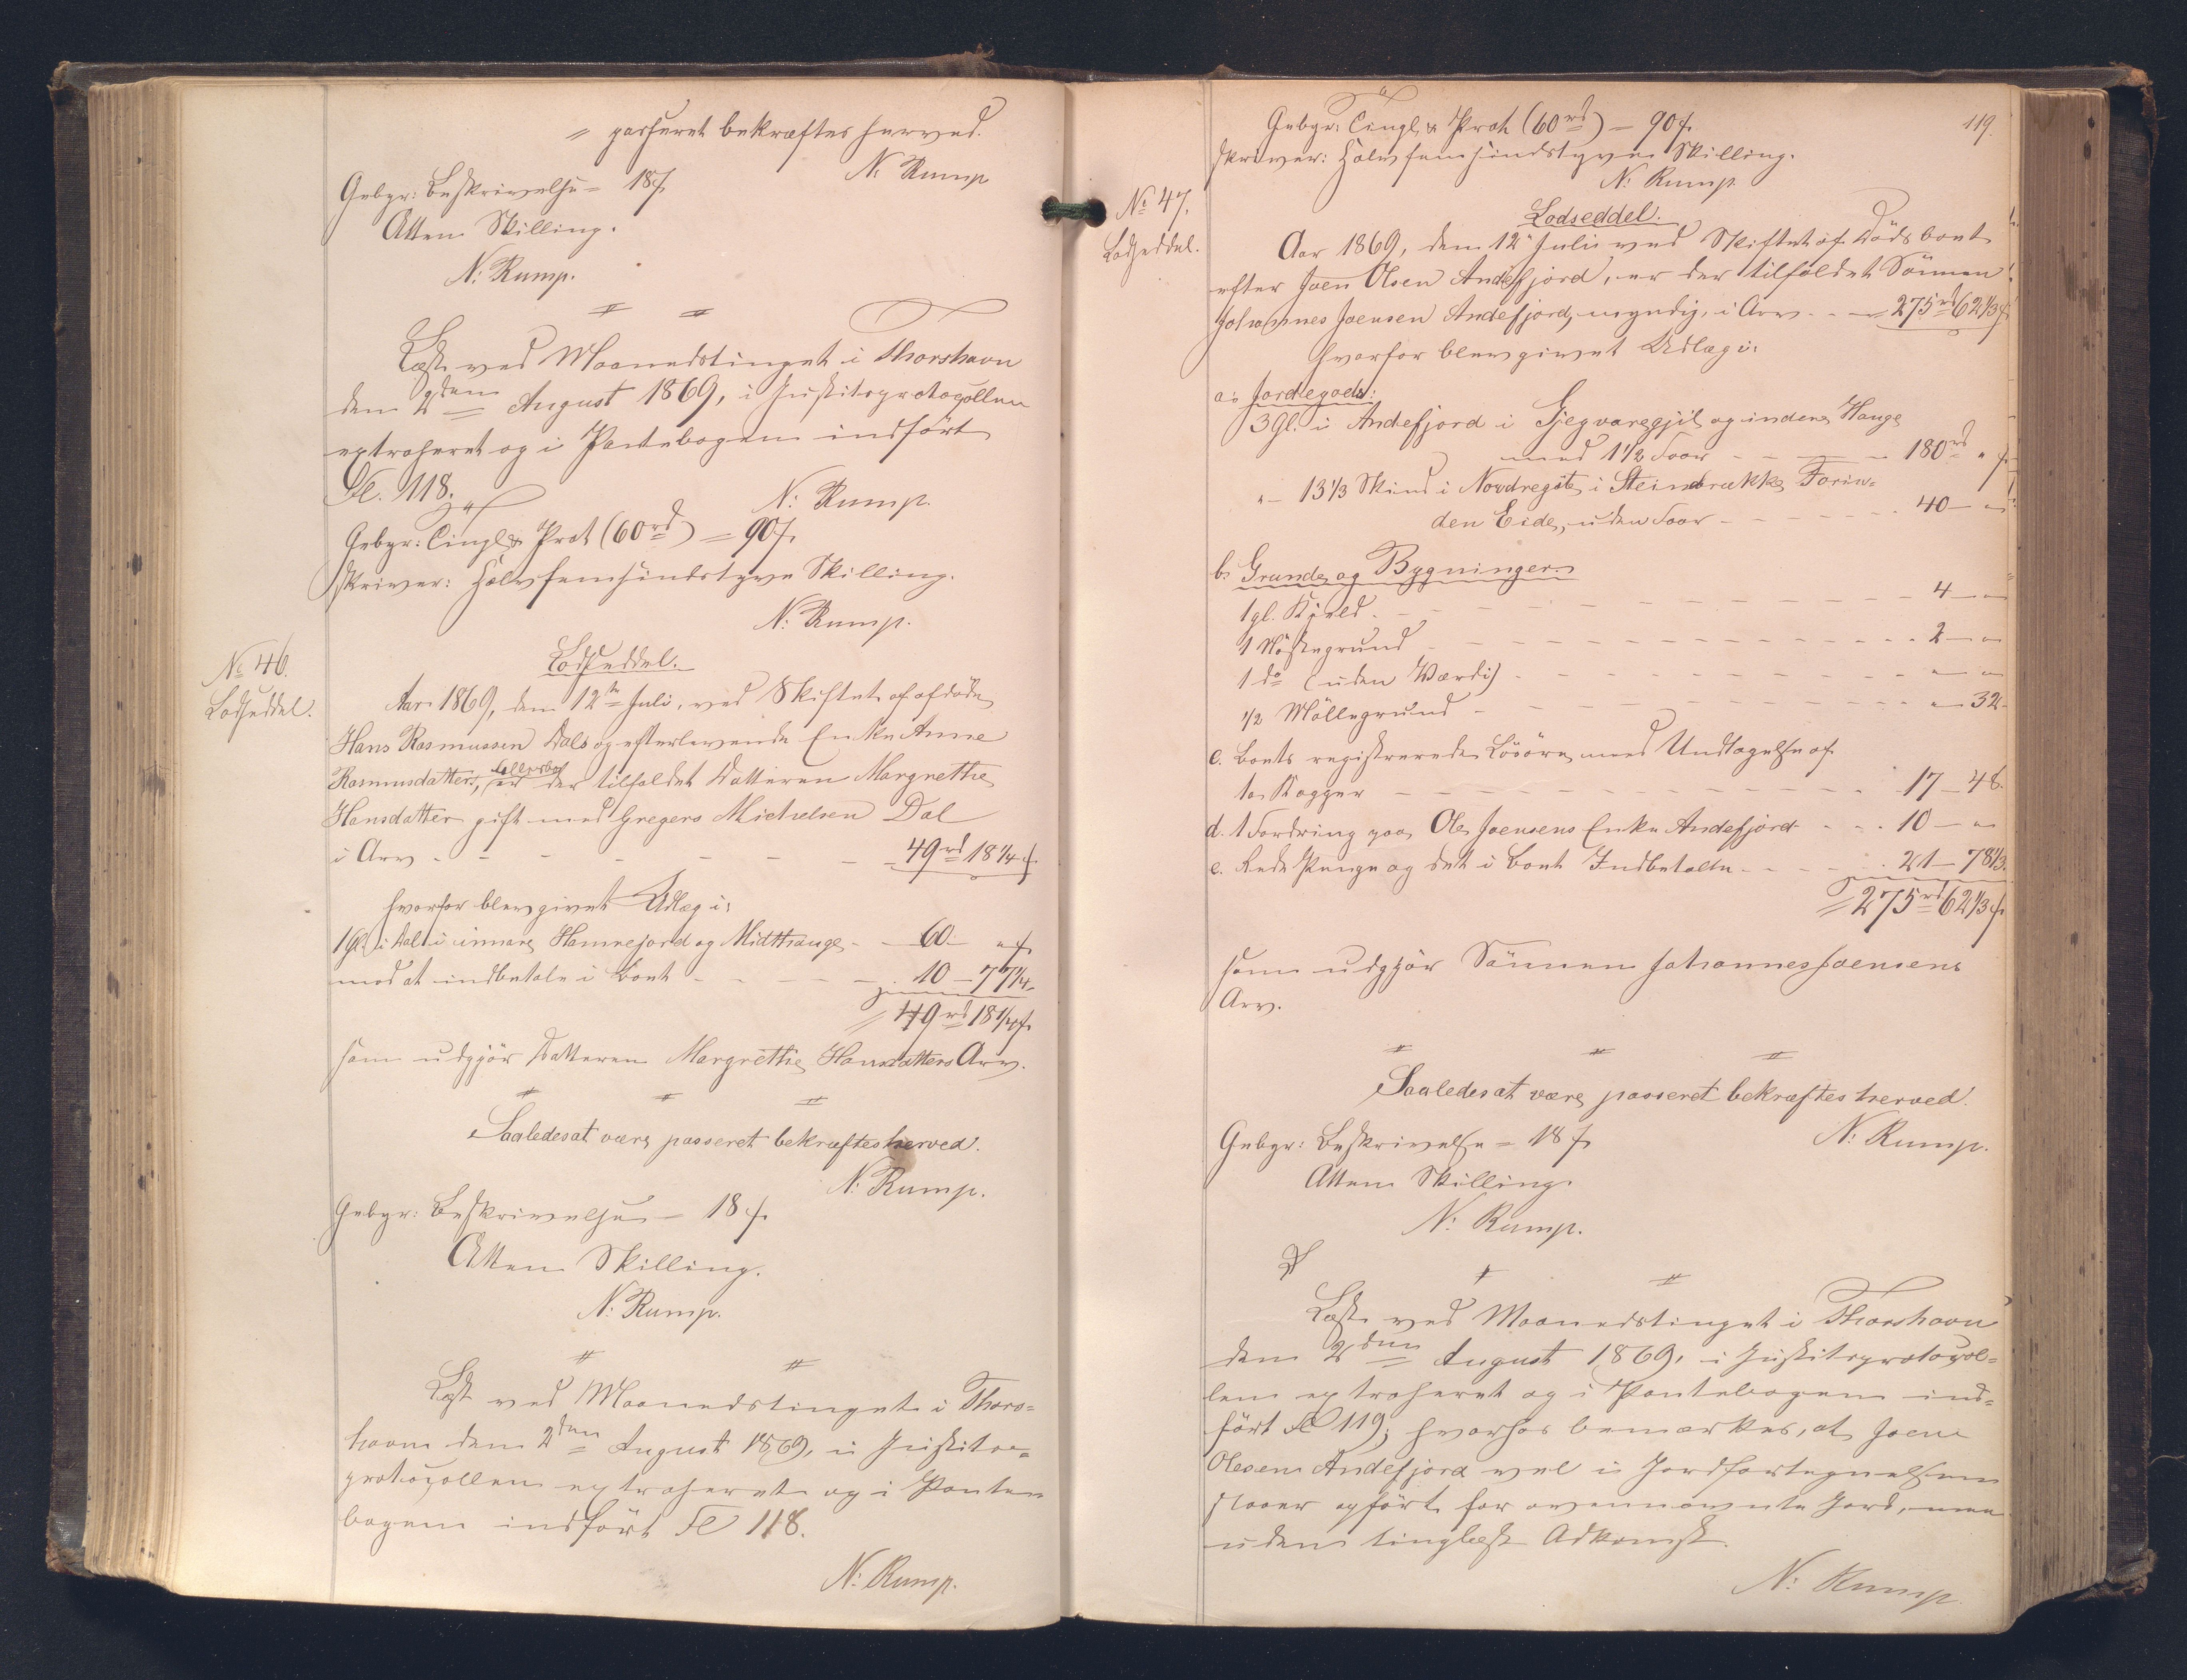 passeret bekræftes herved.
N. Rump
Gebyr: Beskrivelse = 18 ſ.
Atten Skilling.
N. Rump.
Læst ved Maanedstinget i Thorshavn
den 2den August 1869, i Justitsprotocollen
extraheret og i Pantebogen indført
Fol. 118.
N. Rump.
Gebyr: Tingl. & Prot (60 rd) = 90 ſ.
skriver: Halvfemsindstyve Skilling.
N. Rump.
No 46.
Lodseddel.
Lodseddel.
Aar 1869, den 12te Juli, ved Skiftet af afdøde
Hans Rasmussen Dals og efterlevende Enke Anne
Rasmusdatters, er der tilfaldet Datteren Margrethe
Hansdatter gift med Gregers Michelsen Dal
i Arv - - - - - - 49 rd 18 1/4 ſ.
hvorfor blev givet Udlæg i:
1 Gl. i Dal i innare Hamrejord og Midthauge - - 60 - " ſ
mod at indbetale i Boet - - - - 10 - 77 3/4
= 49 rd 18 1/4 ſ.
som udgjør Datteren Margrethe Hansdatters Arv.
Saaledes at være passeret bekræftes herved.
N. Rump.
Gebyr: Beskrivelse = 18 ſ.
Atten Skilling.
N. Rump.
Læst ved Maanedstinget i Thors=
havn den 2den August 1869, i Justits=
protocollen extraheret og i Pante
bogen indført Fol 118.
N. Rump.
119.
Gebyr: Tingl. & Prot (60 rd) = 90 ſ.
skriver: Halvfemsindstyve Skilling.
N. Rump.
No 47.
Lodseddel.
Lodseddel.
Aar 1869, den 12 Juli ved Skiftet af Dødsboet
efter Joen Olsen Andefjord, er der tilfaldet Sønnen
Johannes Joensen Andefjord, myndig, i Arv - - 275 rd 62 1/3 ſ
hvorfor blev givet Udlæg i:
a. Jordegods:
3 Gl. i Andefjord i Gjegvaregjil og indene Hauge
med 1 1/2 Foer - - - - 180 rd " ſ
"- 13 1/3 Skind i Nordregøte i Steinbrække Forin=
den Eide, uden Foer - - - - - 40 - "
b. Grunde og Bygninger:
1 gl. Kjeld - - - - - - - 4 - "
1 Nøstegrund - - - - - - - 2 - "
1 do (uden Værdi) - - - - - - " - "
1/2 Møllegrund - - - - - - - " - 32
c. Boets registrerede Løsøre med Undtagelse af
1 Kagger - - - - - - - 17 - 48.
d. 1 Fordring paa Ole Joensens Enke Andefjord - - - 10 - "
e. Rede Penge og det i Boet Indbetalte - - - 21 - 78 1/3.
= 275 rd 62 1/3 ſ.
som udgjør Sønnen Johannes Joensens
Arv.
Saaledes at være passeret bekræftes herved.
N. Rump.
Gebyr: Beskrivelse = 18 ſ.
Atten Skilling.
N. Rump.
Læst ved Maanedstinget i Thorshavn
den 2den August 1869, i Justitsprotocol=
len extraheret og i Pantebogen ind=
ført Fol 119; hvorhos bemærkes, at Joen
Olesen Andefjord vel i Jordfortegnelsen
staaer opført for ovennævnte Jord, men
uden tinglæst Adkomst.
N. Rump.